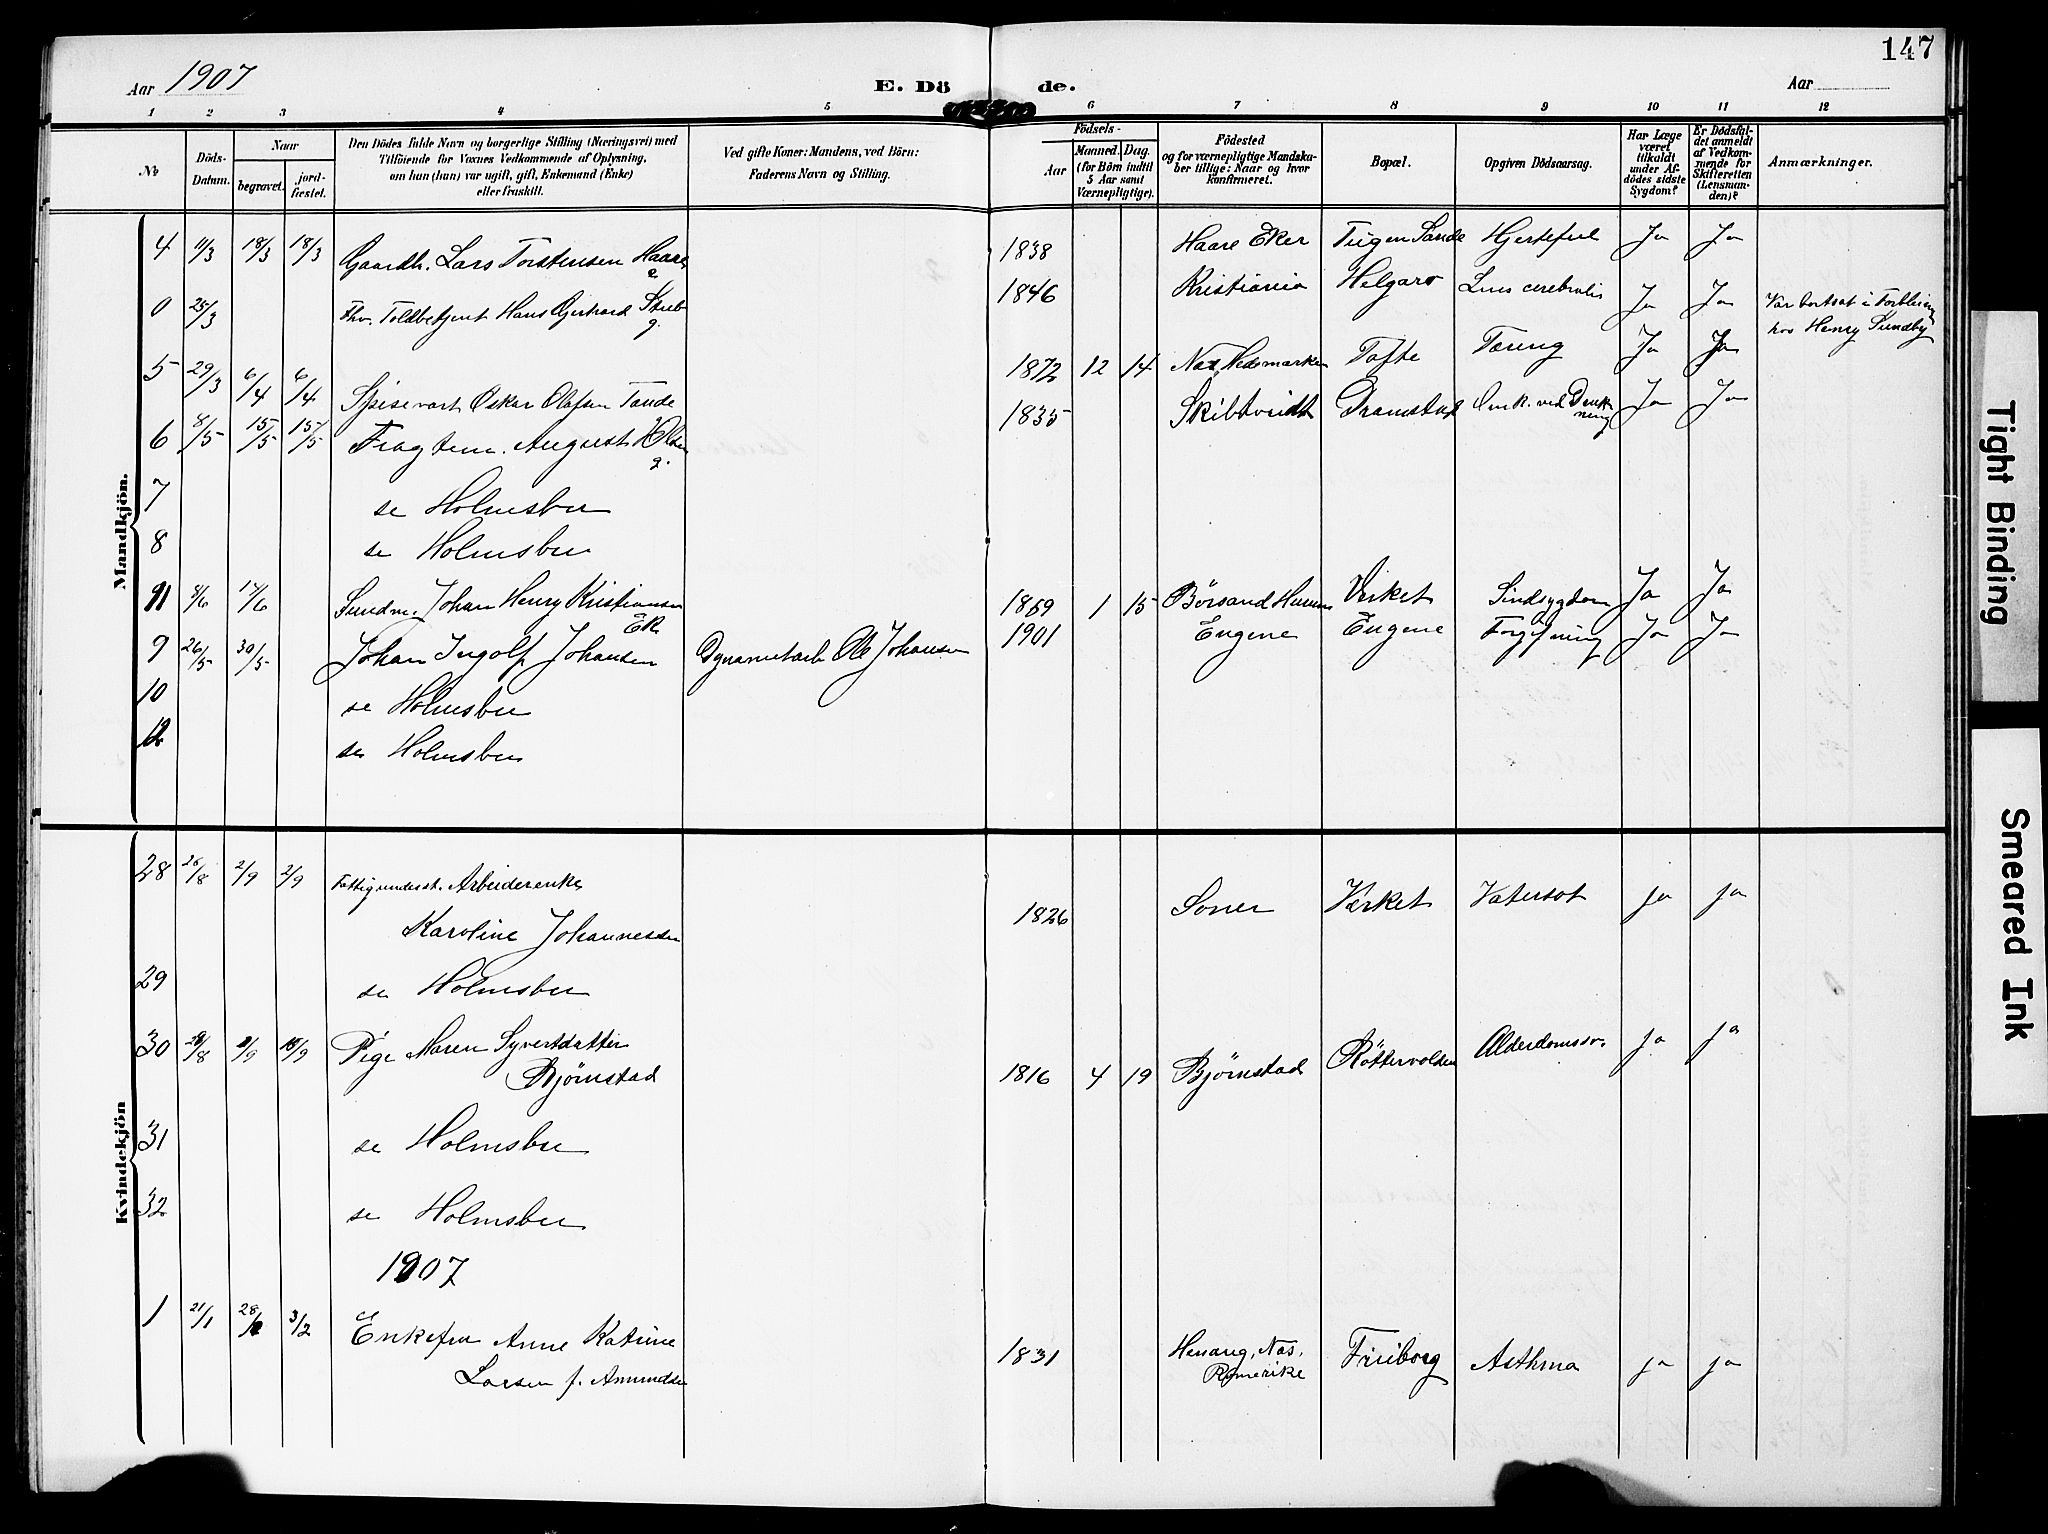 147
Aar 1907
E. Dö de.
Aar
1 2 3 4 5 6 7 8 9 10 11 12
No
Döds-Datum.
Naar
begravet.
jord-fæstet.
Den Dödes fulde Navn og borgerlige Stilling (Næringsvei) med
Tilföiende for Voxnes Vedkommende af Oplysning,
om han (hun) var ugift, gift, Enkemand (Enke)
eller fraskilt.
Ved gifte Koner: Mandens, ved Börn:
Faderens Navn og Stilling.
Födsels-
Aar
Maaned. Dag.
(for Börn indtil
5 Aar samt
Værnepligtige).
Födested
og for værnepligtige Mandska-
ber tillige: Naar og hvor
konfirmeret.
Bopæl.
Opgiven Dödsaarsag.
Har Læge
været
tilkaldt
under Af-
dödes sidste
Sygdom?
Er Dödsfal-
det anmeldt
af Vedkom-
mende for
Skifteretten
(Lensman-
den)?
Anmærkninger.
Mandkjön.
4 11/3 18/3 18/3 Gaardb. Lars Torstensen Haare g 1838 Haare Eker Tugen Sande Hjertefeil Ja Ja
0 25/3 Fhv. Toldbetjent Hans Gjerhard g. 1846 Kristiania Helgarø Lues cerebralis Ja Ja Var bortsat i Forpleining
hos Henry Sundby
5 29/3 6/4 6/4 Spisevært Oskar Olafsen Tande 1872 12 14 Nas, Hedemarken Tofte Tæring Ja Ja
6 8/5 15/5 15/5 Fragtem. August Olsen g. 1835 Skibtveidt Dramstad Omk. ved Drukning Ja Ja
7 se Holmsbu
8 se Holmsbu
11 8/6 17/6 Sundm. Johan Henry Kristiansen Ek 1869 1 15 Børsand Hurum Verket Sindsygdom Ja Ja
9 26/5 30/5 Johan Ingolf Johansen Dynamitarb Ole Johansen 1901 Engene Engene Forgiftning Ja Ja
10 se Holmsbu
12 se Holmsbu
Kvindekjön
28 26/8 2/9 2/9 Fattigunderst. Arbeiderenke
Karoline Johannessen 1826 Soner Verket Vatersot ja ja
29 se Holmsbu
30 /8 /9 /9 Pige Maren Syvertdatter
Bjørnstad 1816 4 19 Bjørnstad Røttervolden Alderdomssv. ja ja
31 se Holmsbu
32 se Holmsbu
1907
1 21/1 28/1 3/2 Enkefru Anne Katrine
Larsen f. Amundsen 1831 Nas,
Romerike Friiborg Asthma ja ja
Tight Binding
Smeared Ink